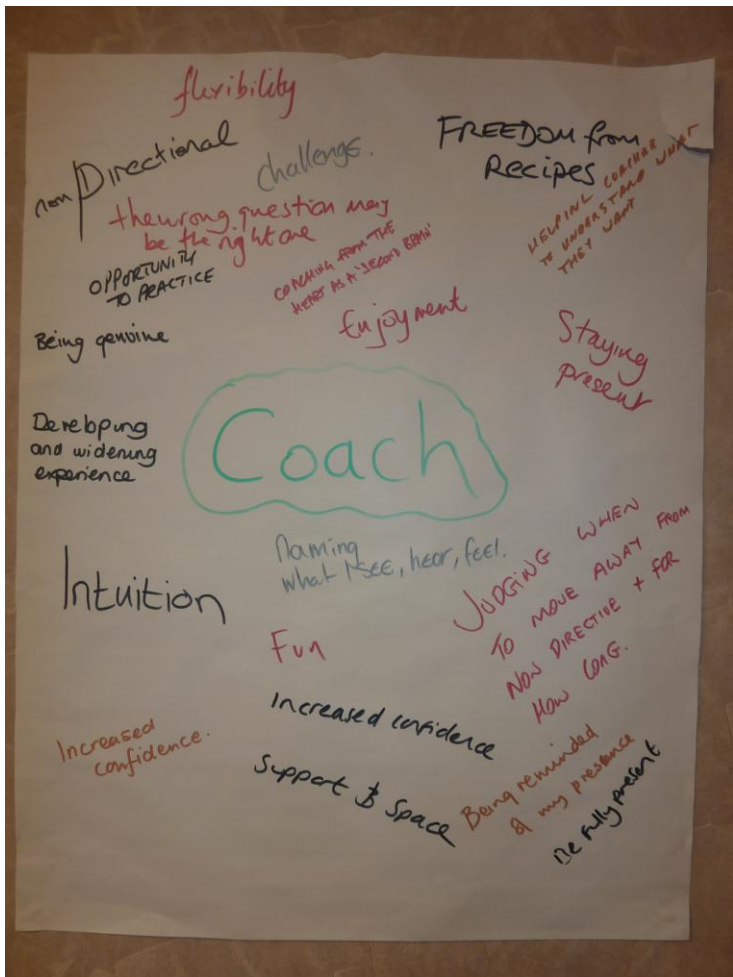 flexibility
non Directional
challenge.
FREEDOM from
Recipes
the wrong question may
be the right one
HELPING COACHEE
TO UNDERSTAND WHAT
THEY WANT
OPPORTUNITY
TO PRACTICE
COACHING FROM THE
HEART AS A 'SECOND BRAIN'
Enjoyment
Being genuine
Staying
present
Developing
and widening
experience
Coach
Naming
what I SEE, hear, feel.
Intuition
JUDGING WHEN
TO MOVE AWAY FROM
NON DIRECTIVE + FOR
HOW LONG.
Fun
Increased confidence
Increased
confidence.
Support & Space
Being reminded
of my presence
Be fully present